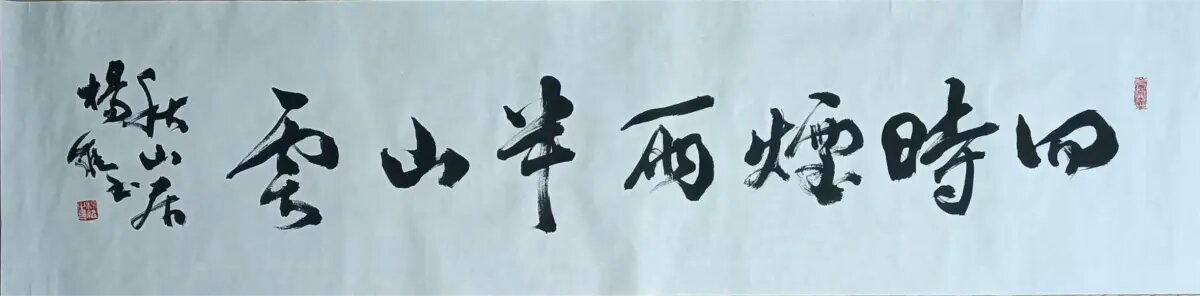 四時煙雨半山雲
秋山居
楊書